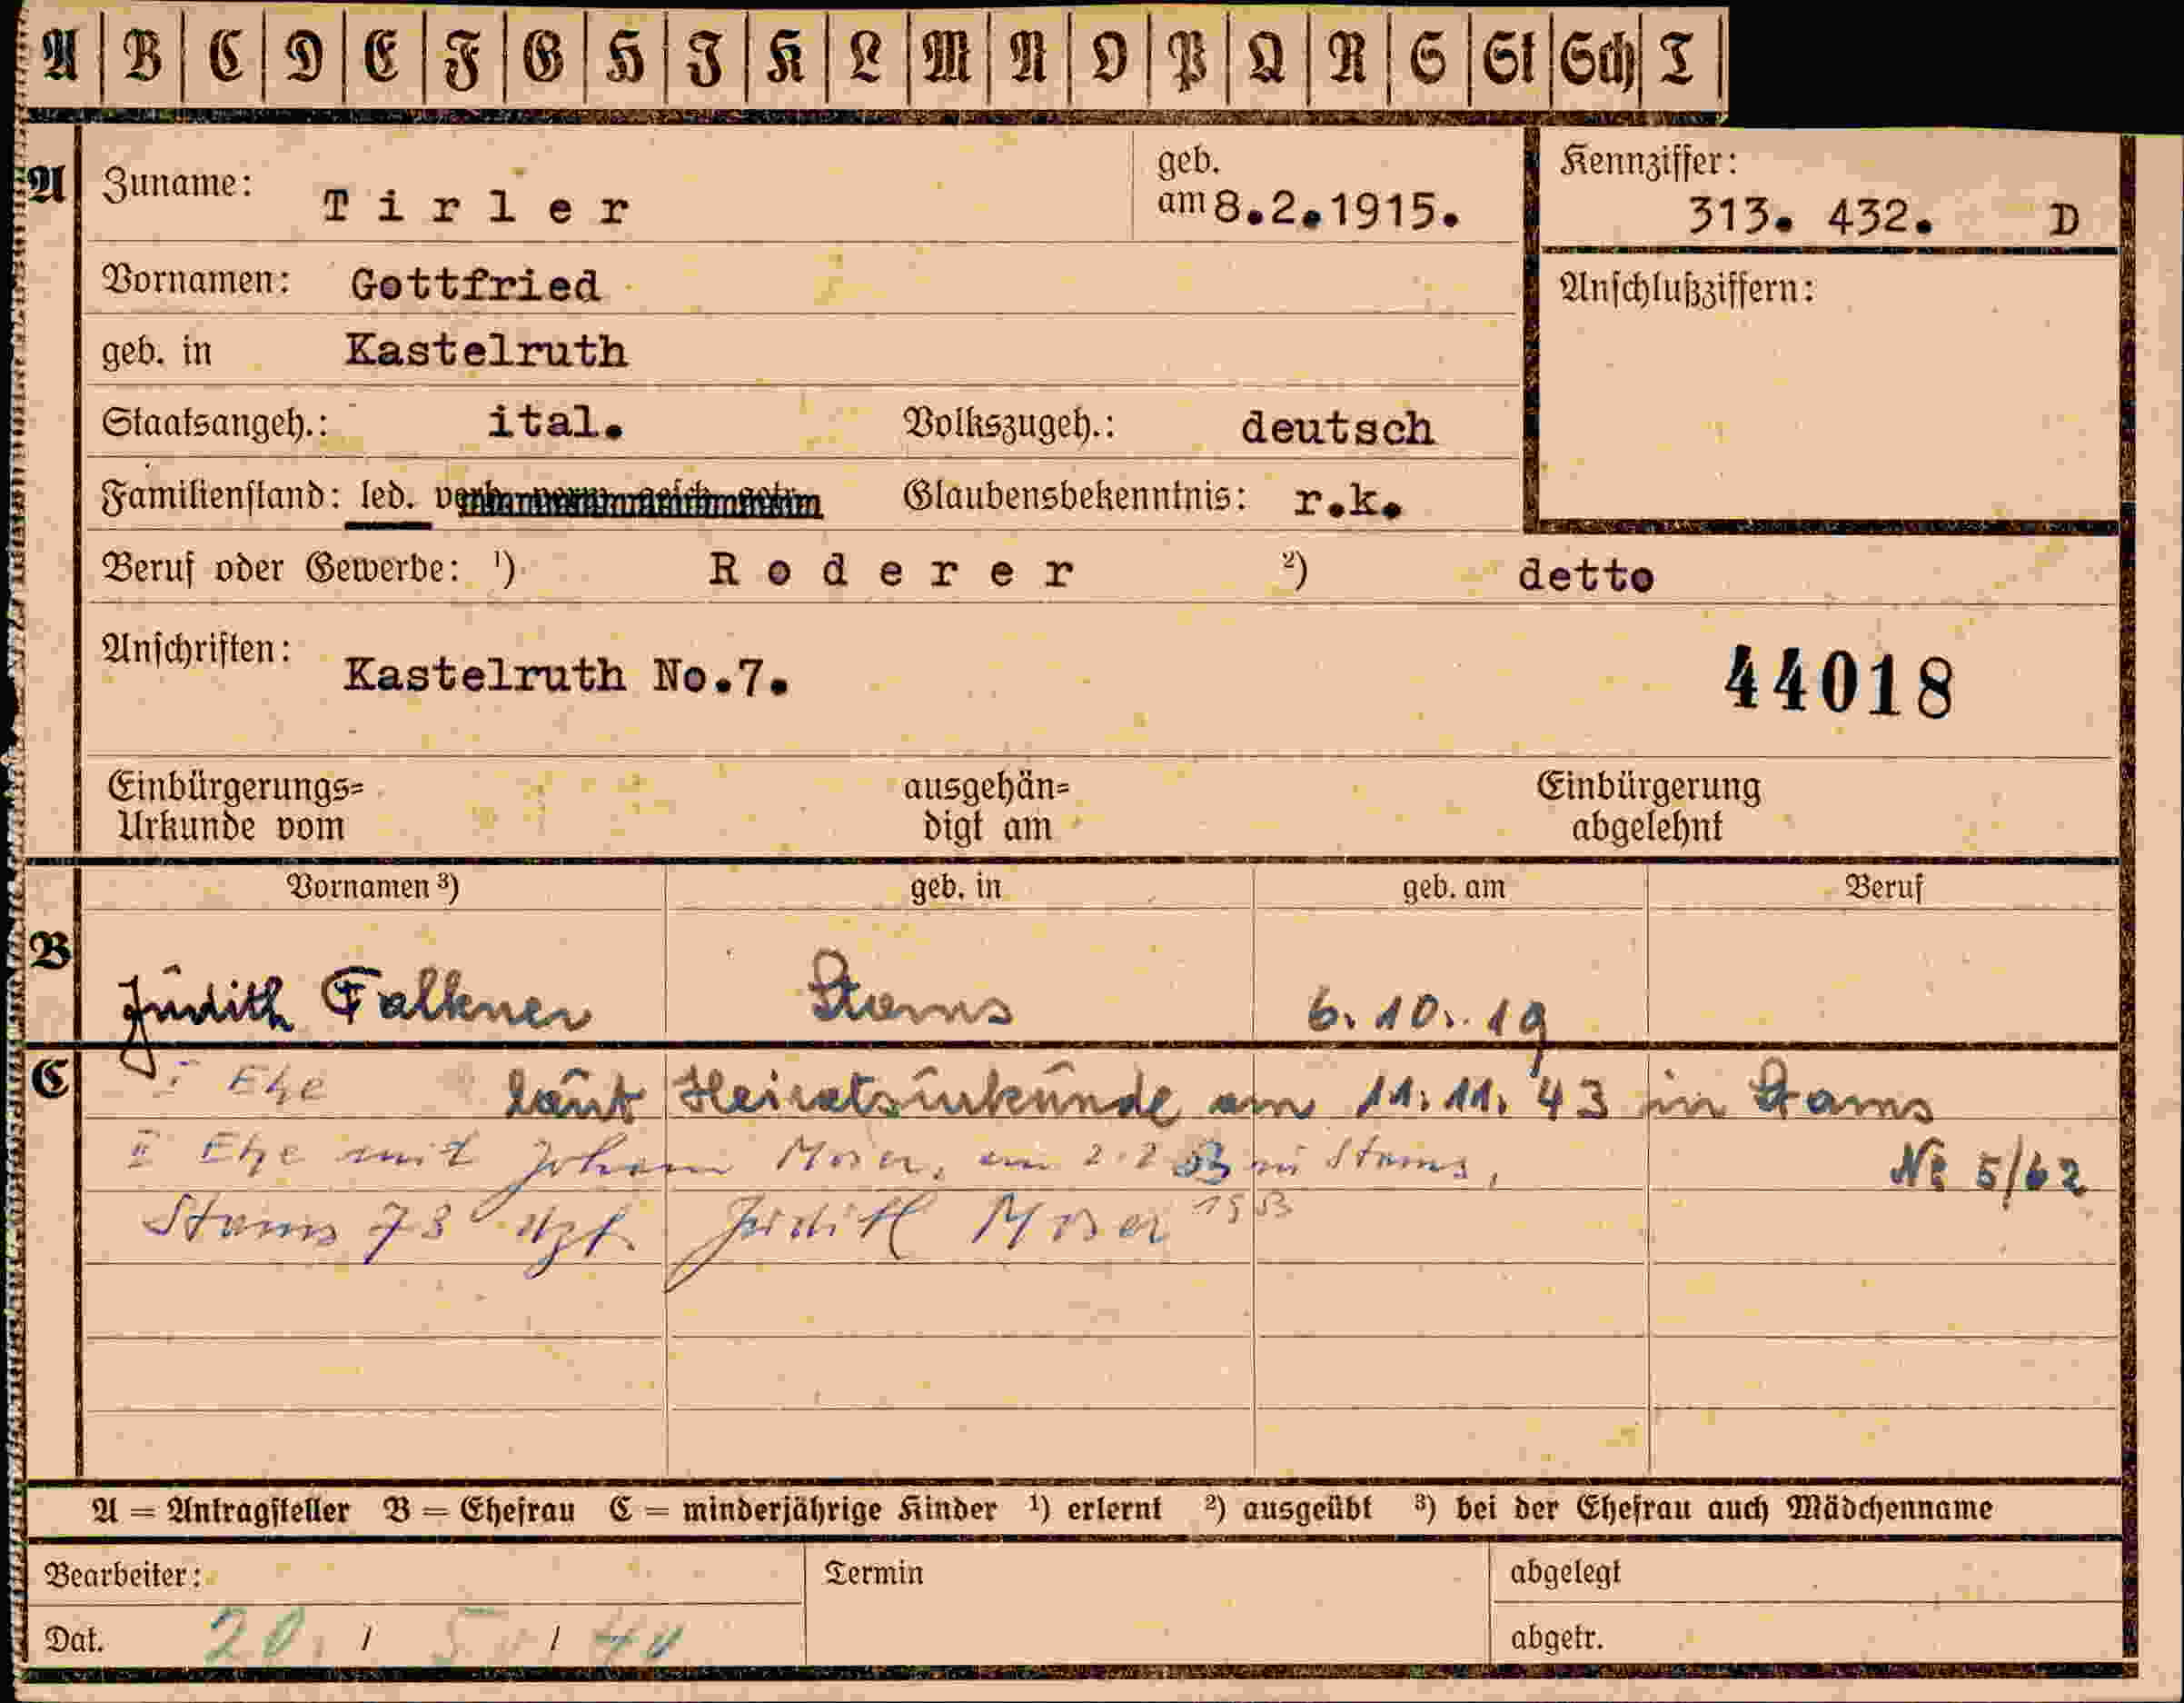 A B C D E F G H I K L M N O P Q R S St Sch T
A Zuname: Tirler geb. am 8.2.1915. Kennziffer: 313. 432. D
Vornamen: Gottfried Anschlußziffern:
geb. in Kastelruth
Staatsangeh.: ital. Volkszugeh.: deutsch
Familienstand: led. Glaubensbekenntnis: r.k.
Beruf oder Gewerbe: ¹) Roderer ²) detto
Anschriften: Kastelruth No.7. 44018
Einbürgerungs= ausgehän= Einbürgerung
Urkunde vom digt am abgelehnt
Vornamen ³) geb. in geb. am Beruf
B Judith Falkner Stams 6. 10. 19
C I Ehe laut Heiratsurkunde am 11. 11. 43 in Stams
II Ehe mit Johann Moser, am 2.2 53 in Stams, No 5/62
Stams 73 Judith Moser 1953
A = Antragsteller B = Ehefrau C = minderjährige Kinder ¹) erlernt ²) ausgeübt ³) bei der Ehefrau auch Mädchenname
Bearbeiter: Termin abgelegt
Dat. 20. / 5. / 40 abgetr.